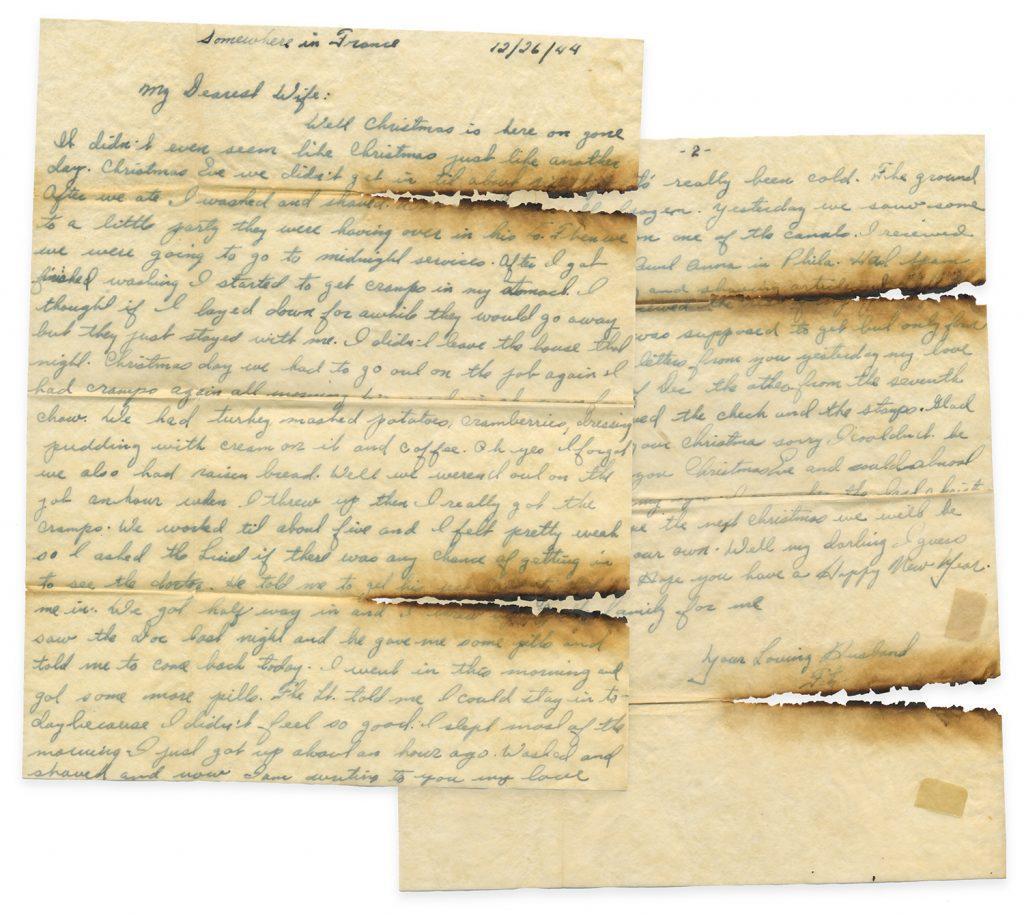 Somewhere in France 12/26/44
My Dearest Wife:
Well Christmas is here on gone
It didn't even seem like Christmas just like another
day. Christmas Eve we didn't get in til about
After we ate I washed and shaved.
to a little party they were having over in his Then we
we were going to go to midnight services. After I got
finished washing I started to get cramps in my stomach. I
thought if I layed down for awhile they would go away
but they just stayed with me. I didn't leave the house that
night. Christmas day we had to go out on the job again I
had cramps again all morning
chow. We had turkey mashed potatoes, cramberries, dressing
pudding with cream on it and coffee. Oh yes I forgot
we also had raisen bread. Well we weren't out on the
job an hour when I threw up then I really got the
cramps. We worked til about five and I felt pretty weak
so I asked the if there was any chance of getting in
to see the doctor. He told me to get
me in. We got half way in and I
saw the Doc last night and he gave me some pills and
told me to come back today. I went in this morning and
got some more pills. The Lt. told me I could stay in to-
day because I didn't feel so good. I slept most of the
morning. I just got up about an hour ago. Washed and
shaved and now I am writing to you my love
-2-
It's really been cold. The ground
frozen. Yesterday we saw some
on one of the canals. I received
Aunt Anna in Phila. Had
and shaving
was supposed to get but only four
letters from you yesterday my love
Dec the other from the seventh
the check and the stamps. Glad
your Christmas sorry I couldn't be
you Christmas Eve and could almost
the last Christ
the next Christmas we will be
our own. Well my darling I guess
Hope you have a Happy New Year.
family for me
Your Loving Husband